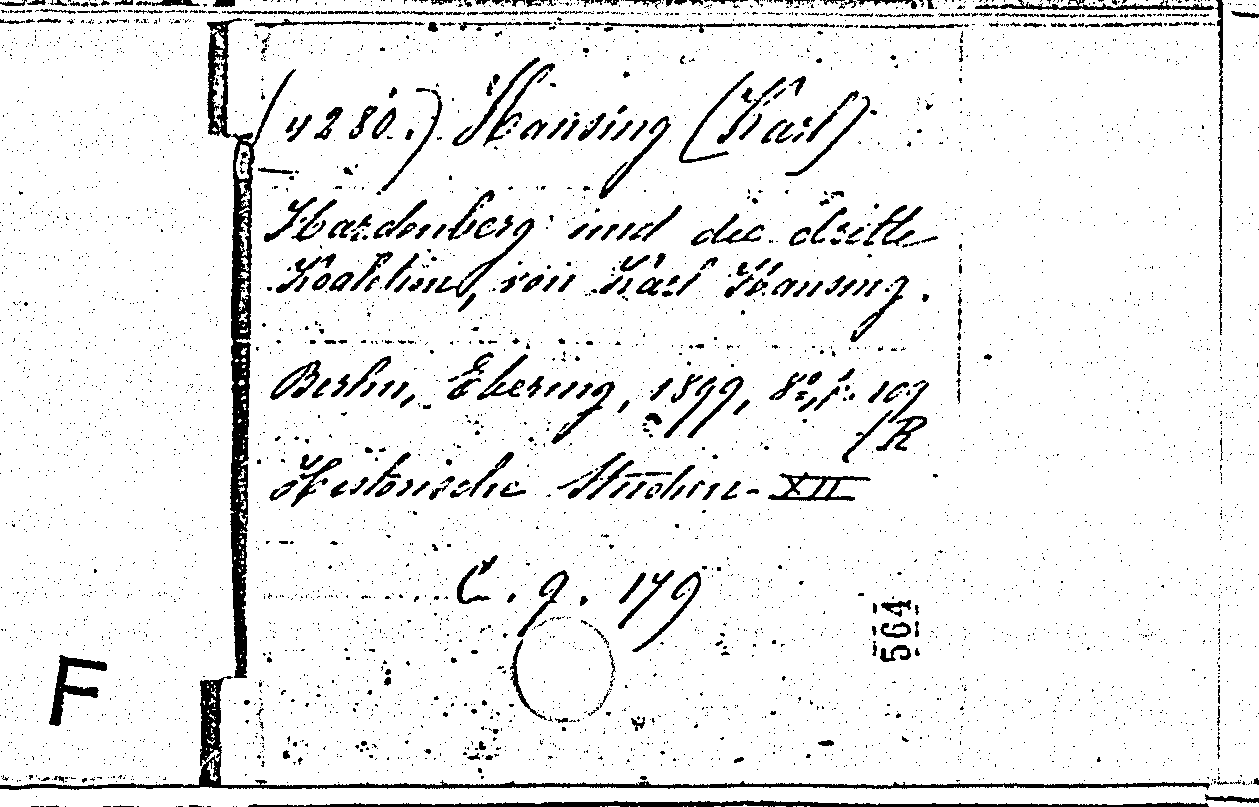 (4280.) Hansing (Karl)
Hardenberg und die dritte
Koalition, von Karl Hansing.
Berlin, Ebering, 1899, 8º, p. 109
/R
Historische Studien - XII
C. 9. 179
564
F